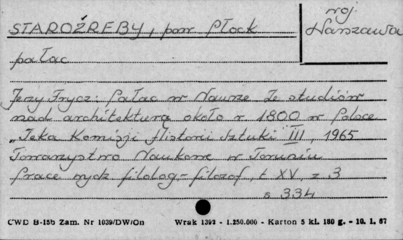 STAROŹREBY, pow. Płock
woj
Warszawa
pałac
Jerzy Frycz: Pałac w Nawrze Ze studiów
nad architekturą około r. 1800 w Polsce
„Teka Komisji Historii Sztuki" III, 1965
Towarzystwo Naukowe w Toruniu
Prace wydz. filolog-filozof, t XV, z 3
s 334
CWD B-15b Zam. Nr 1039/DW/On Wrak 1392 - 1.250.000 - Karton 5 kl. 180 g. - 10. 1. 67